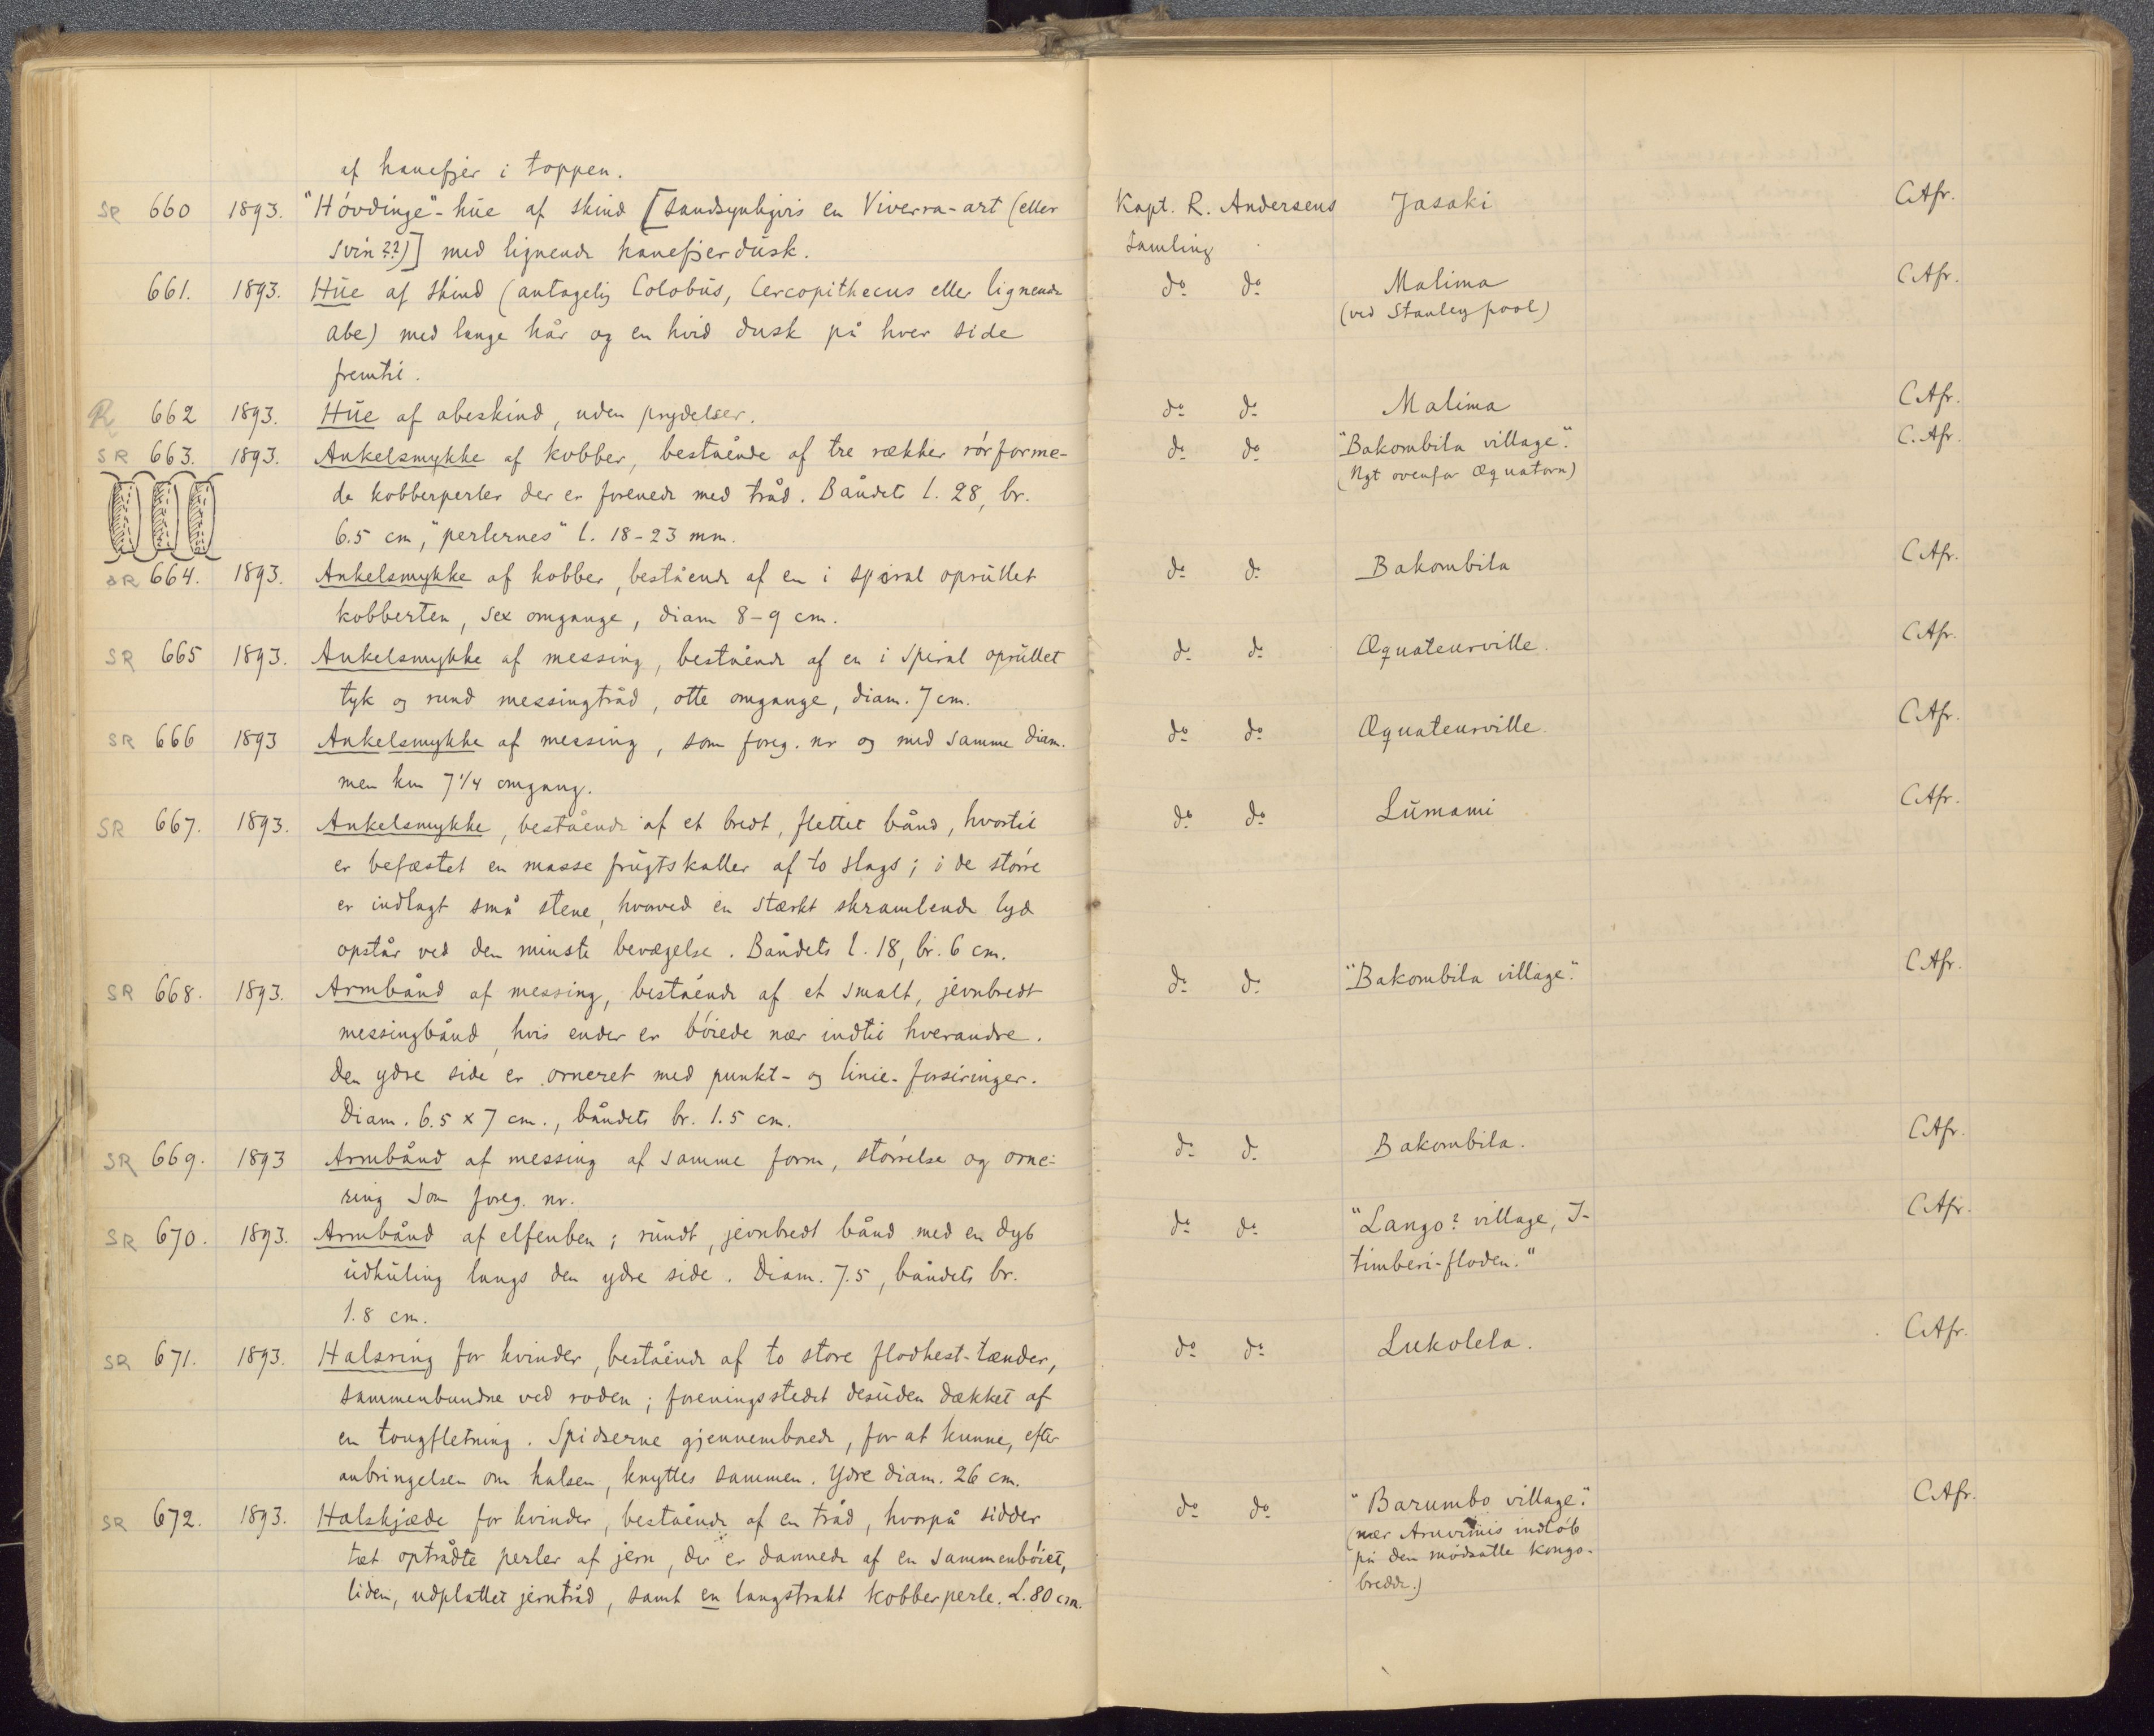 af hanefjer i toppen.
SR 660 1893. "Hövdinge"-hue af skind [sandsynligvis en Viverra-art (eller Kapt. R. Andersens Jasaki C.Afr.
svin??)] med lignende hanefjerdusk. samling
661. 1893. Hue af skind (antagelig Colobus, Cercopithecus eller lignende do do Malima C.Afr.
abe) med lange hår og en hvid dusk på hver side (ved Stanley pool)
fremtil.
R 662 1893. Hue af abeskind, uden prydelser. do do Malima C.Afr.
SR 663. 1893. Ankelsmykke af kobber, bestående af tre rækker rörforme- do do "Bakombila village". C. Afr.
de kobberperler der er forenede med tråd. Båndets l. 28, br. (Ngt ovenfor Æquatorn)
6.5 cm, "perlernes" l. 18-23 mm.
SR 664. 1893. Ankelsmykke af kobber, bestående af en i spiral oprullet do do Bakombila C.Afr.
kobberten, sex omgange, diam 8-9 cm.
SR 665 1893. Ankelsmykke af messing, bestående af en i spiral oprullet do do Æquateurville. C.Afr.
tyk og rund messingtråd, otte omgange, diam. 7 cm.
SR 666 1893 Ankelsmykke af messing, som foreg. nr og med samme diam. do do Æquateurville. C.Afr.
men kun 7 1/4 omgang.
SR 667. 1893. Ankelsmykke, bestående af et bredt, flettet bånd, hvortil do do Lumami C.Afr.
er befæstet en masse frugtskaller af to slags; i de större
er indlagt små stene, hvorved en stærkt skramlende lyd
opstår ved den minste bevægelse. Båndets l. 18, br. 6 cm.
SR 668. 1893. Armbånd af messing, bestående af et smalt, jevnbredt do do "Bakombila village". C.Afr.
messingbånd, hvis ender er böiede nær indtil hverandre.
Den ydre side er orneret med punkt- og linie-forsiringer.
Diam. 6.5 x 7 cm., båndets br. 1.5 cm.
SR 669. 1893 Armbånd af messing af samme form, störrelse og orne- do do Bakombila. C.Afr.
ring som foreg. nr.
SR 670. 1893. Armbånd af elfenben; rundt, jevnbredt bånd med en dyb do do "Lango? village, I- C.Afr.
udhuling langs den ydre side. Diam. 7.5, båndets br. timberi-floden."
1.8 cm.
SR 671. 1893. Halsring for kvinder, bestående af to store flodhest-tænder, do do Lukolela. C.Afr.
sammenbundne ved roden; foreningsstedet desuden dækket af
en tougfletning. Spidserne gjennemborede, for at kunne, efter
anbringelsen om halsen, knyttes sammen. Ydre diam. 26 cm.
SR 672. 1893. Halskjæde for kvinder, bestående af en tråd, hvorpå sidder do do "Barumbo village". C.Afr.
tæt optrådte perler af jern, der er dannede af en sammenböiet, (nær Aruvimis indlöb
liden, udplattet jerntråd, samt en langstrakt kobberperle. L. 80 cm. på den modsatte kongo-
bredde.)